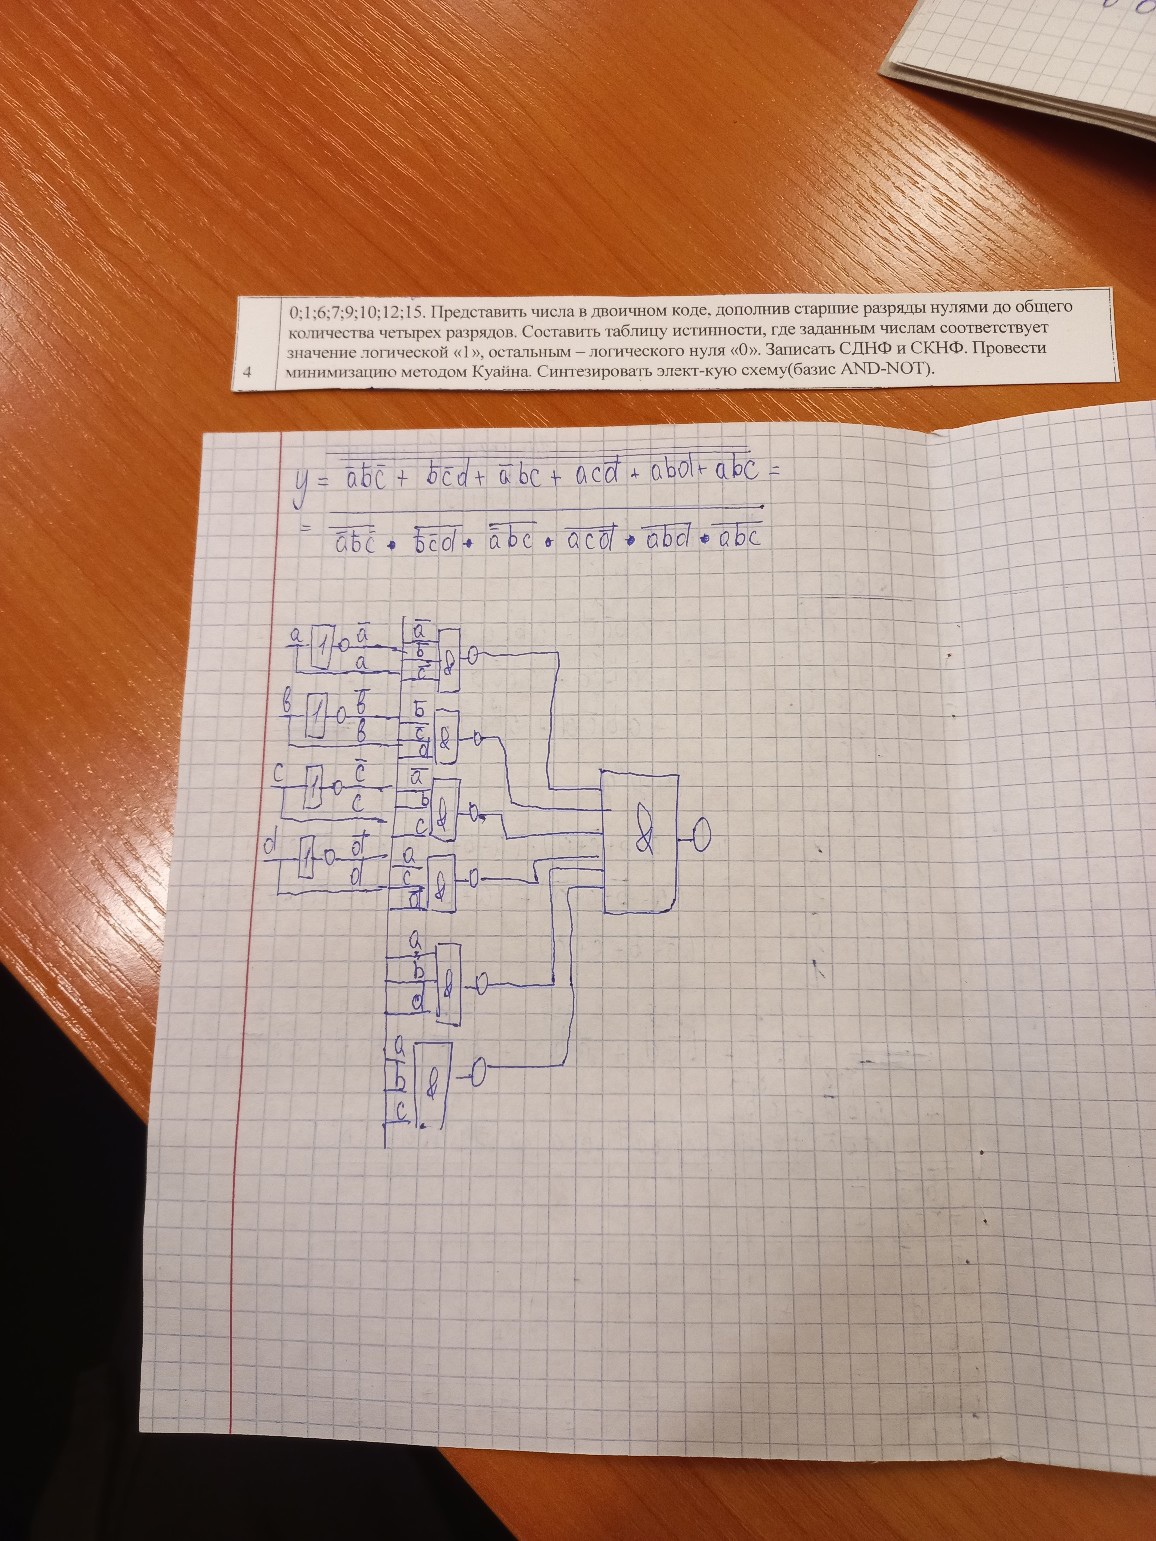 0;1;6;7;9;10;12;15. Представить числа в двоичном коде, дополнив старшие разряды нулями до общего
количества четырех разрядов. Составить таблицу истинности, где заданным числам соответствует
значение логической «1», остальным – логического нуля «0». Записать СДНФ и СКНФ. Провести
4 минимизацию методом Куайна. Синтезировать элект-кую схему(базис AND-NOT).
y = a̅b̅c̅ + b̅c̅d + a̅bc + acd̅ + abd + abc =
= a̅b̅c̅ • b̅c̅d • a̅bc • acd̅ • abd • abc
a 1 a̅
a
a̅
b̅
c̅
&
в 1 в̅
в
b̅
c̅
d
&
c 1 c̅
c
a̅
b
c
&
&
d 1 d̅
d
a
c
d̅
&
a
b
d
&
a
b
c
&